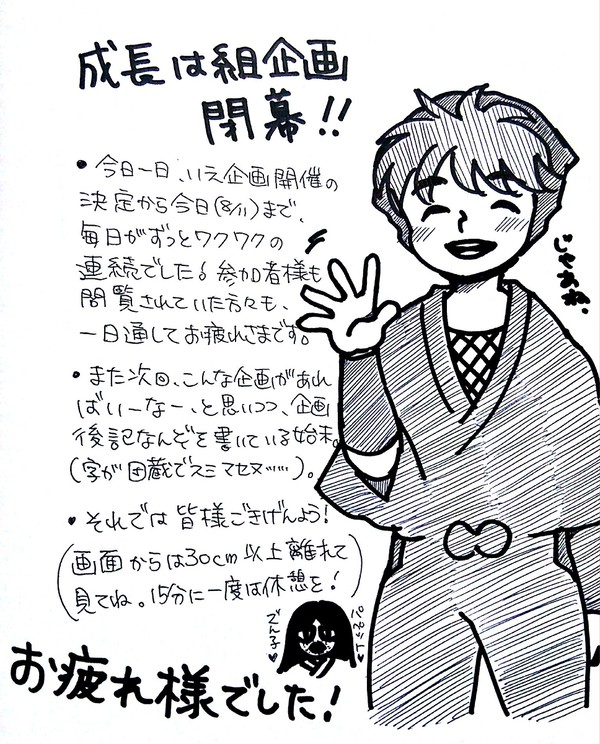 成長は組企画
閉幕!!
• 今日一日、いえ企画開催の
決定から今日(8/11)まで、
毎日がずっとワクワクの
連続でした。参加者様も
閲覧されていた方々も、
一日通してお疲れさまです。
じゃあね。
• また次回、こんな企画があれ
ばいーなー、と思いつつ、企画
後記なんぞを書いている始末。
(字が団蔵でスミマセヌ……)。
• それでは皆様ごきげんよう!
(画面からは30cm以上離れて
見てね。15分に一度は休憩を!)
でん子♥
パペット♥
お疲れ様でした!